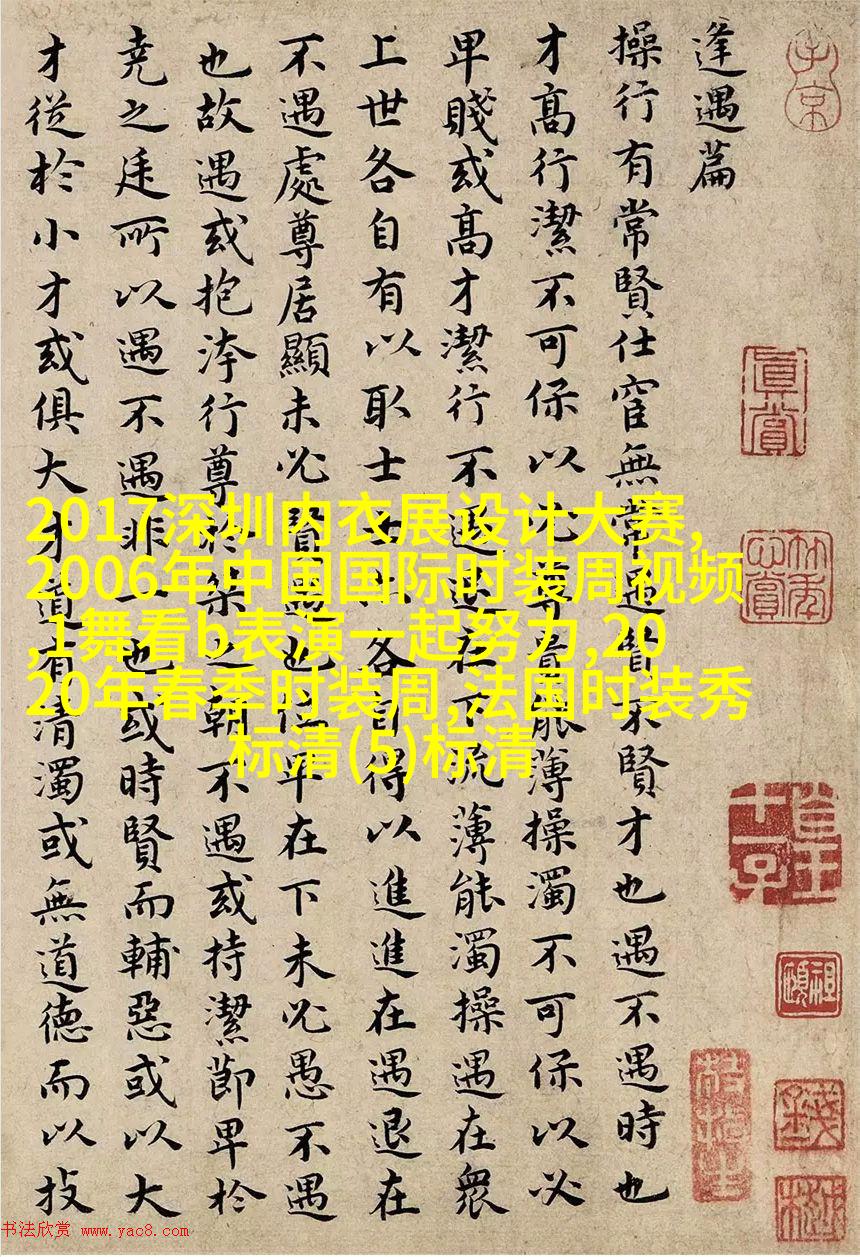 逢遇篇
操行有常賢仕宦無常遇賢不賢才也遇不遇時也
才高行潔不可保以必尊貴能薄操濁不可保以必
卑賤或高才潔行不遇退在下流薄能濁操遇在衆
上世各自有以取士士亦各自得以進進在遇退在
不遇處尊居顯未必賢遇也位卑在下未必愚不遇
也故遇或抱洿行尊於桀之朝不遇或持潔節卑於
堯之廷所以遇不遇非一也或時賢而輔惡或以大
才從於小才或俱大才道有清濁或無道德而以技
眞賞
2017深圳内衣展设计大赛,
2006年中国国际时装周视频
,1舞看b表演一起努力,20
20年春季时装周,法国时装秀
标清(5)标清
书法欣赏 www.yac8.com